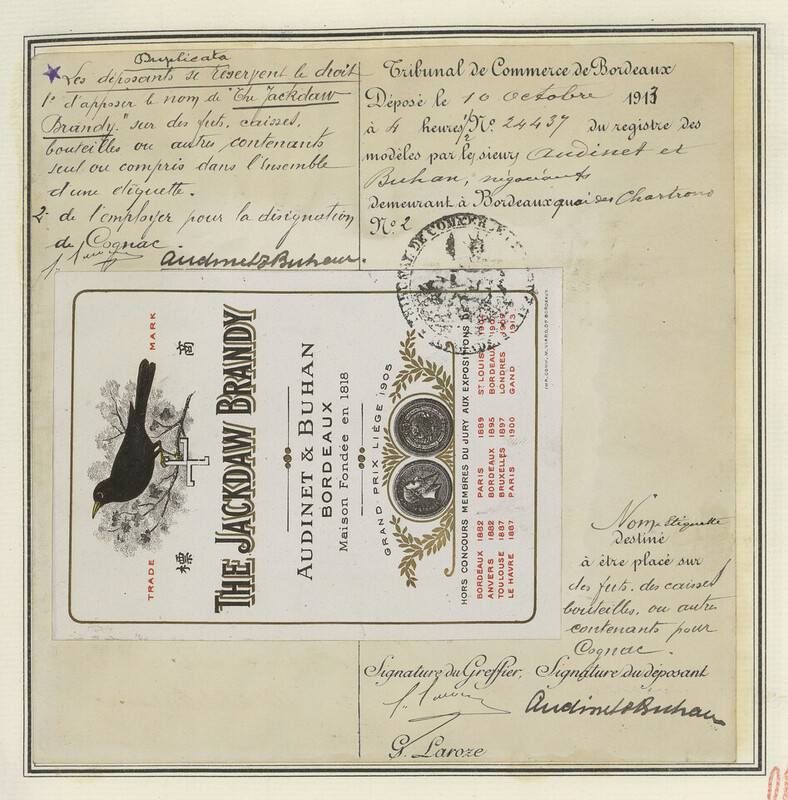 Duplicata
Les déposants se réservent le droit
1º d'apposer le nom de "The Jackdaw
Brandy." sur des futs, caisses,
bouteilles ou autres contenants
seul ou compris dans l'ensemble
d'une étiquette.
2º de l'employer pour la désignation
de Cognac.
Audinet & Buhan.
Tribunal de Commerce de Bordeaux
Déposé le 10 Octobre 1913
à 4 heures 1/2 Nº 24437 du registre des
modèles par les sieurs Audinet et
Buhan, négociants
demeurant à Bordeaux quai des Chartrons
Nº 2
TRADE MARK
商標
THE JACKDAW BRANDY
AUDINET & BUHAN
BORDEAUX
Maison Fondée en 1818
GRAND PRIX LIÉGE 1905
HORS CONCOURS MEMBRES DU JURY AUX EXPOSITIONS DE
BORDEAUX 1882 PARIS 1889 ST LOUIS
ANVERS 1882 BORDEAUX 1895 BORDEAUX
TOULOUSE 1887 BRUXELLES 1897 LONDRES
LE HAVRE 1887 PARIS 1900 GAND 1913
Nom Etiquette
destiné
à être placé sur
des futs, des caisses
bouteilles, ou autres
contenants pour
Cognac.
Signature du Greffier, Signature du déposant
Audinet & Buhan
G. Laroze